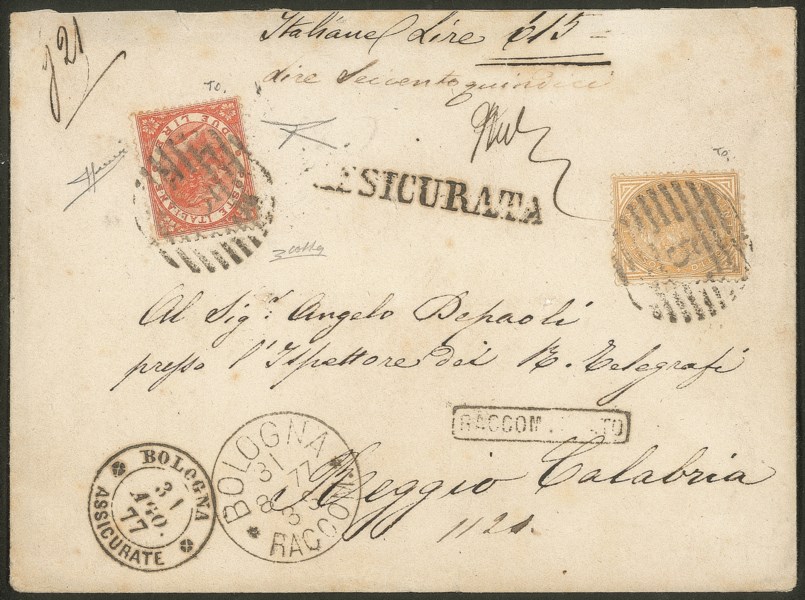 921
Italiane Lire 615 =
Lire Seicentoquindici
TO.
TO.
DUE LIRE
POSTE ITALIANE
ASSICURATA
Al Sig.r Angelo Depaoli
presso l'Ispettore dei R. Telegrafi
RACCOMANDATO
Reggio Calabria
1121.
BOLOGNA
31
AGO.
77
ASSICURATE
BOLOGNA
31 77
8 8 S
RACCOM